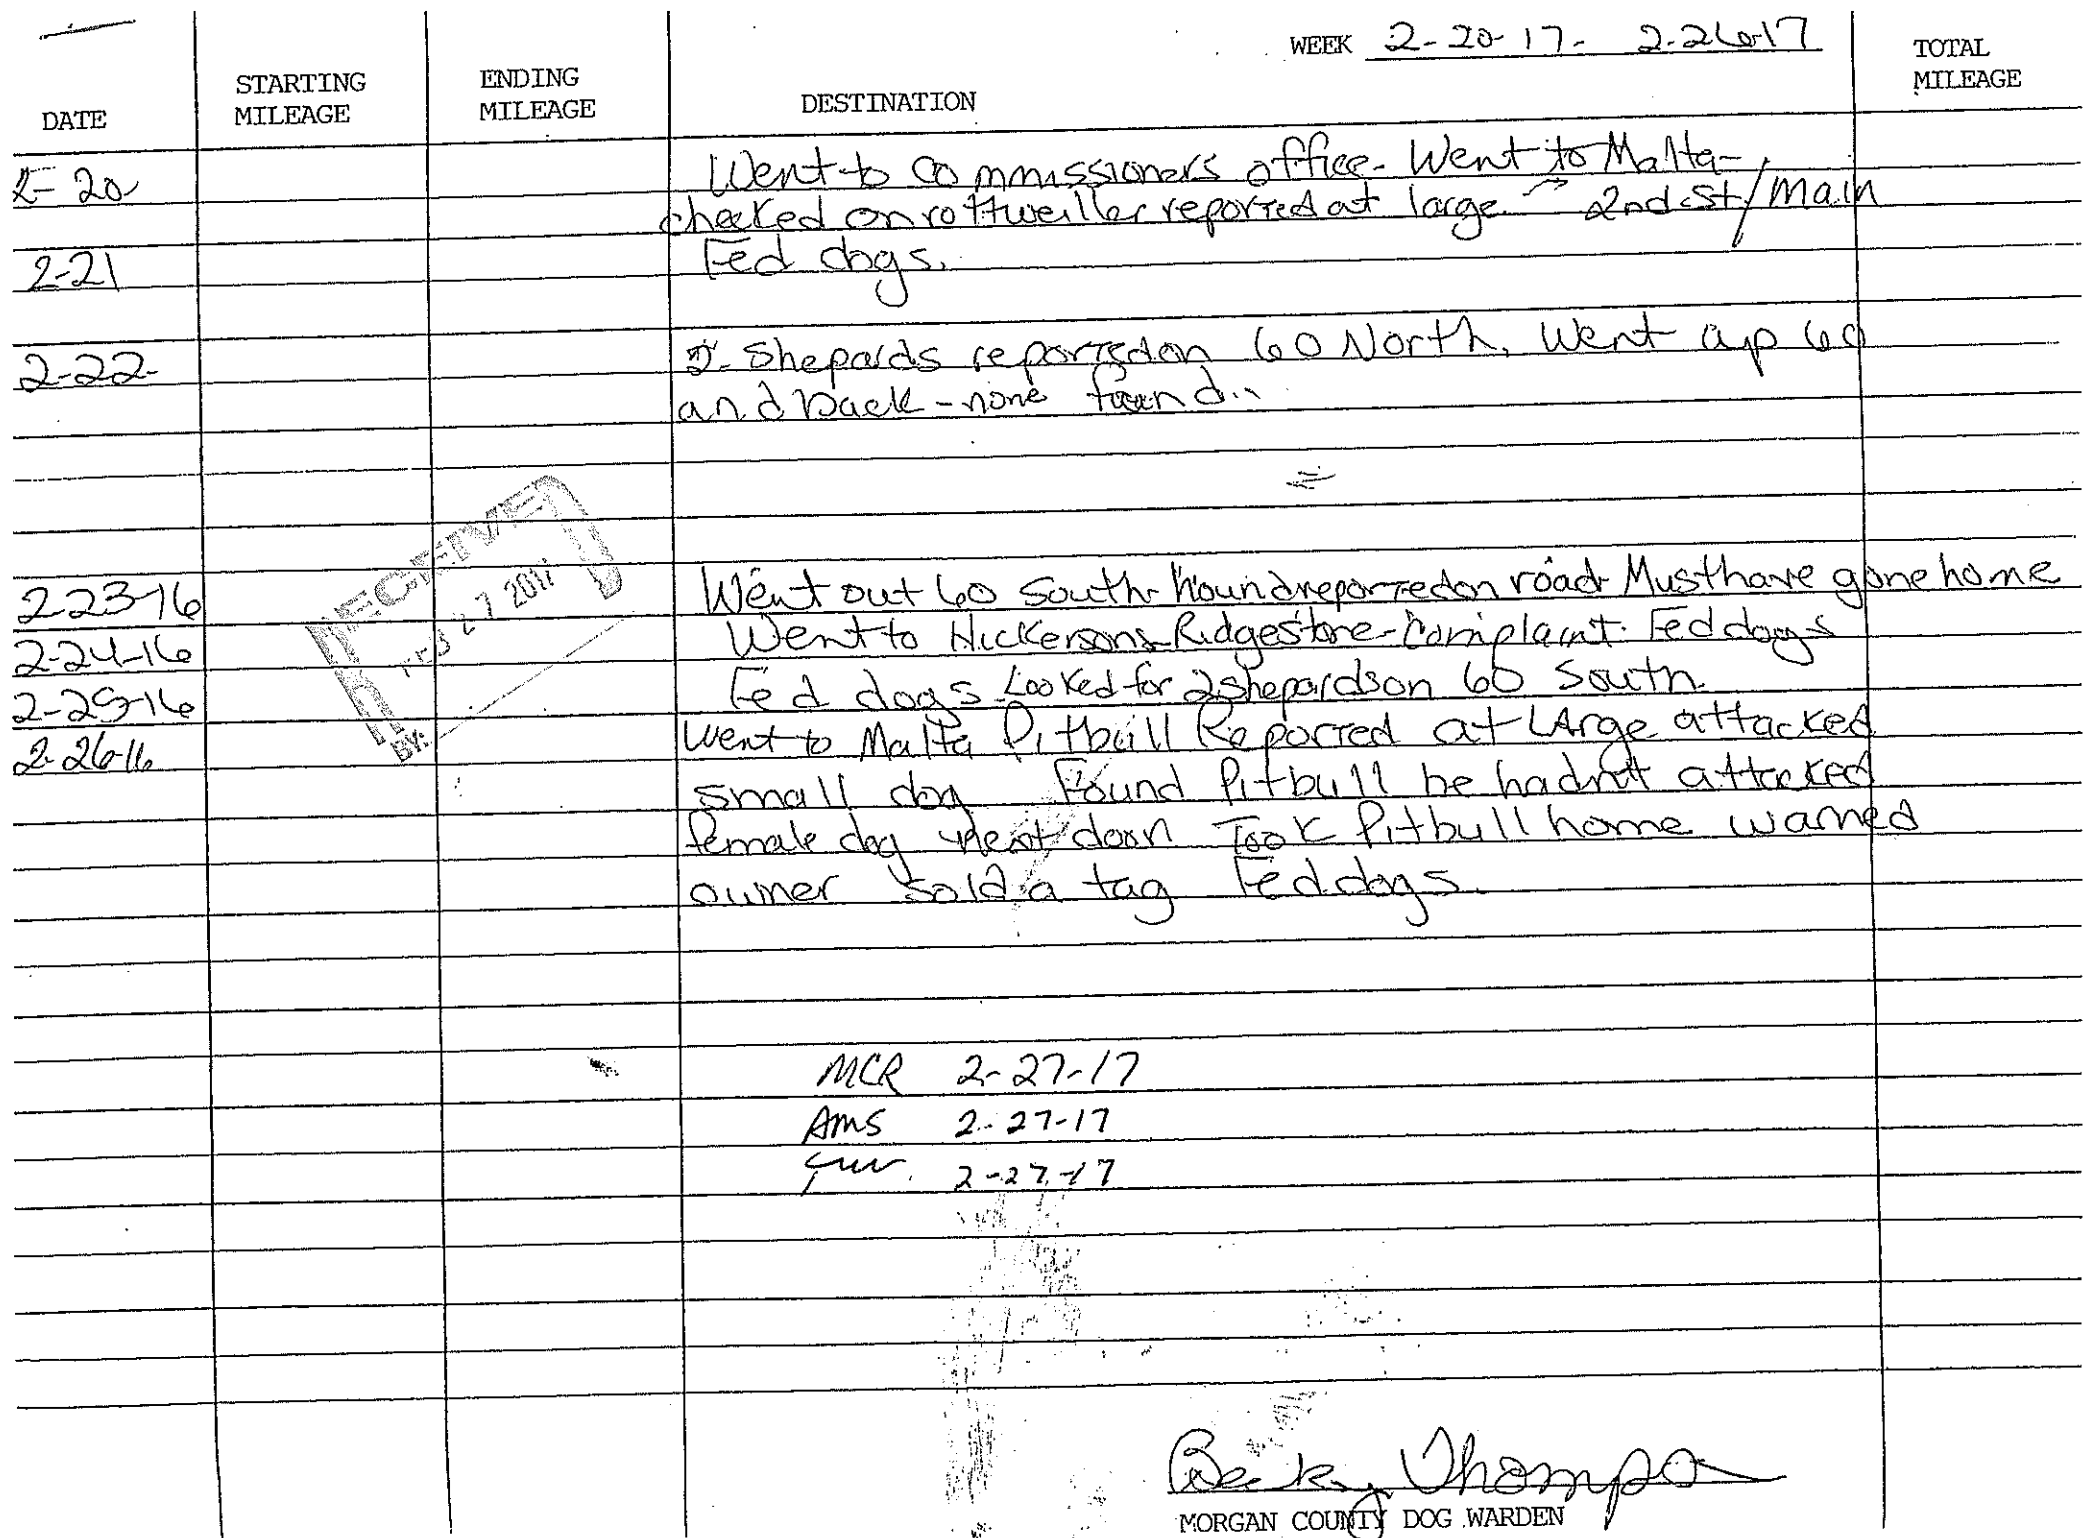 WEEK 2-20-17- 2-26-17
DATE STARTING MILEAGE ENDING MILEAGE DESTINATION TOTAL MILEAGE
2-20- Went to Commissioners office- Went to Malta-
checked on rottweiller reported at large 2nd St/Main
2-21 Fed dogs.
2-22- 2- Shepards reported on 60 North. Went up 60
and back - none found..
2-23-16 Went out 60 South- hound reported on road Must have gone home
2-24-16 Went to Hickersons-Ridgestone-Complaint. Fed dogs
2-25-16 Fed dogs Looked for 2 shepards on 60 South.
2-26-16 Went to Malta Pitbull Reported at LArge attacked
small dog Found Pitbull he hadn't attacked
female dog next door Took Pitbull home warned
owner sold a tag Fed dogs.
RECEIVED
FEB 27 2017
BY:
MCR 2-27-17
AMS 2-27-17
2-27-17
Becky Thompson
MORGAN COUNTY DOG WARDEN